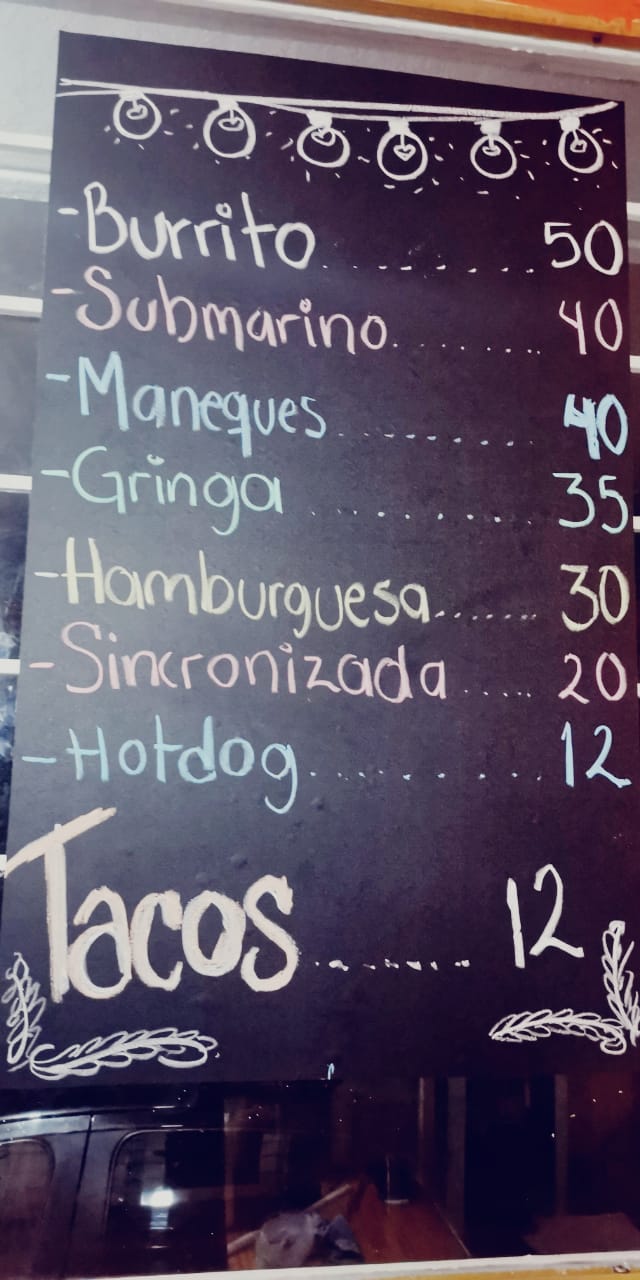 -Burrito.........50
-Submarino.........40
-Maneques.........40
-Gringa.........35
-Hamburguesa......30
-Sincronizada....20
-Hotdog.........12
Tacos.........12